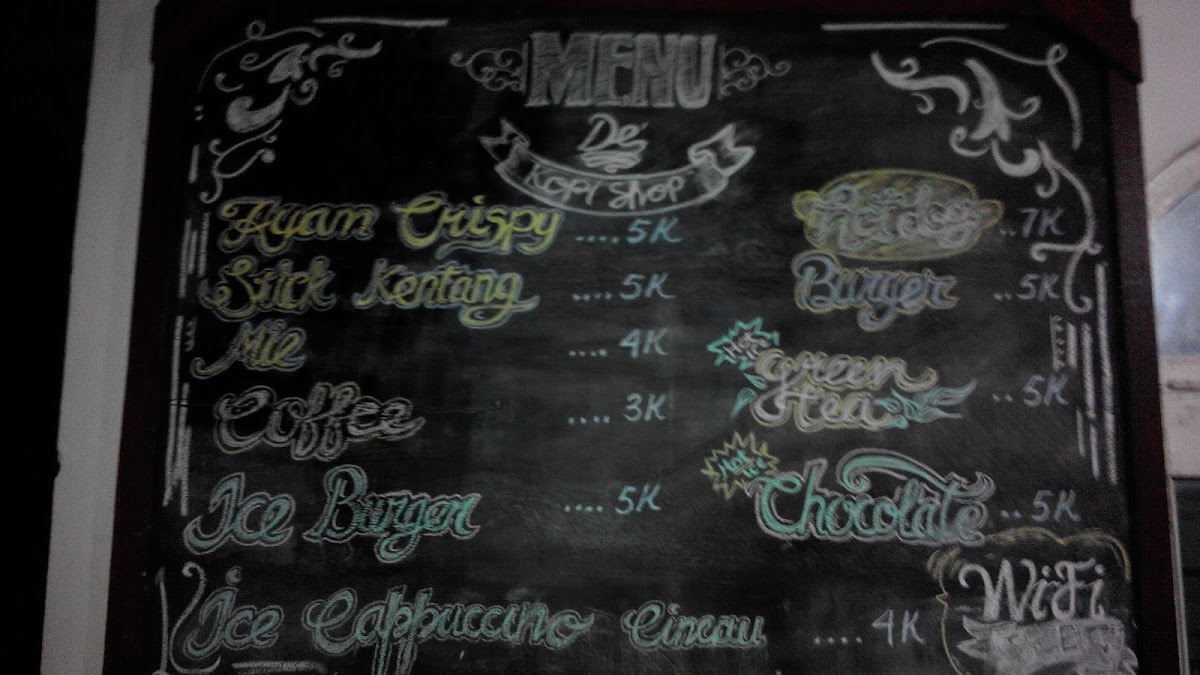 MENU
De'
KOPI SHOP
Ayam Crispy .... 5K
Stick Kentang .... 5K
Mie .... 4K
Coffee .... 3K
Ice Burger .... 5K
Ice Cappuccino Cincau .... 4K
Hotdog .. 7K
Burger .. 5K
Hot
Green
tea .. 5K
Hot
Chocolate .. 5K
WiFi